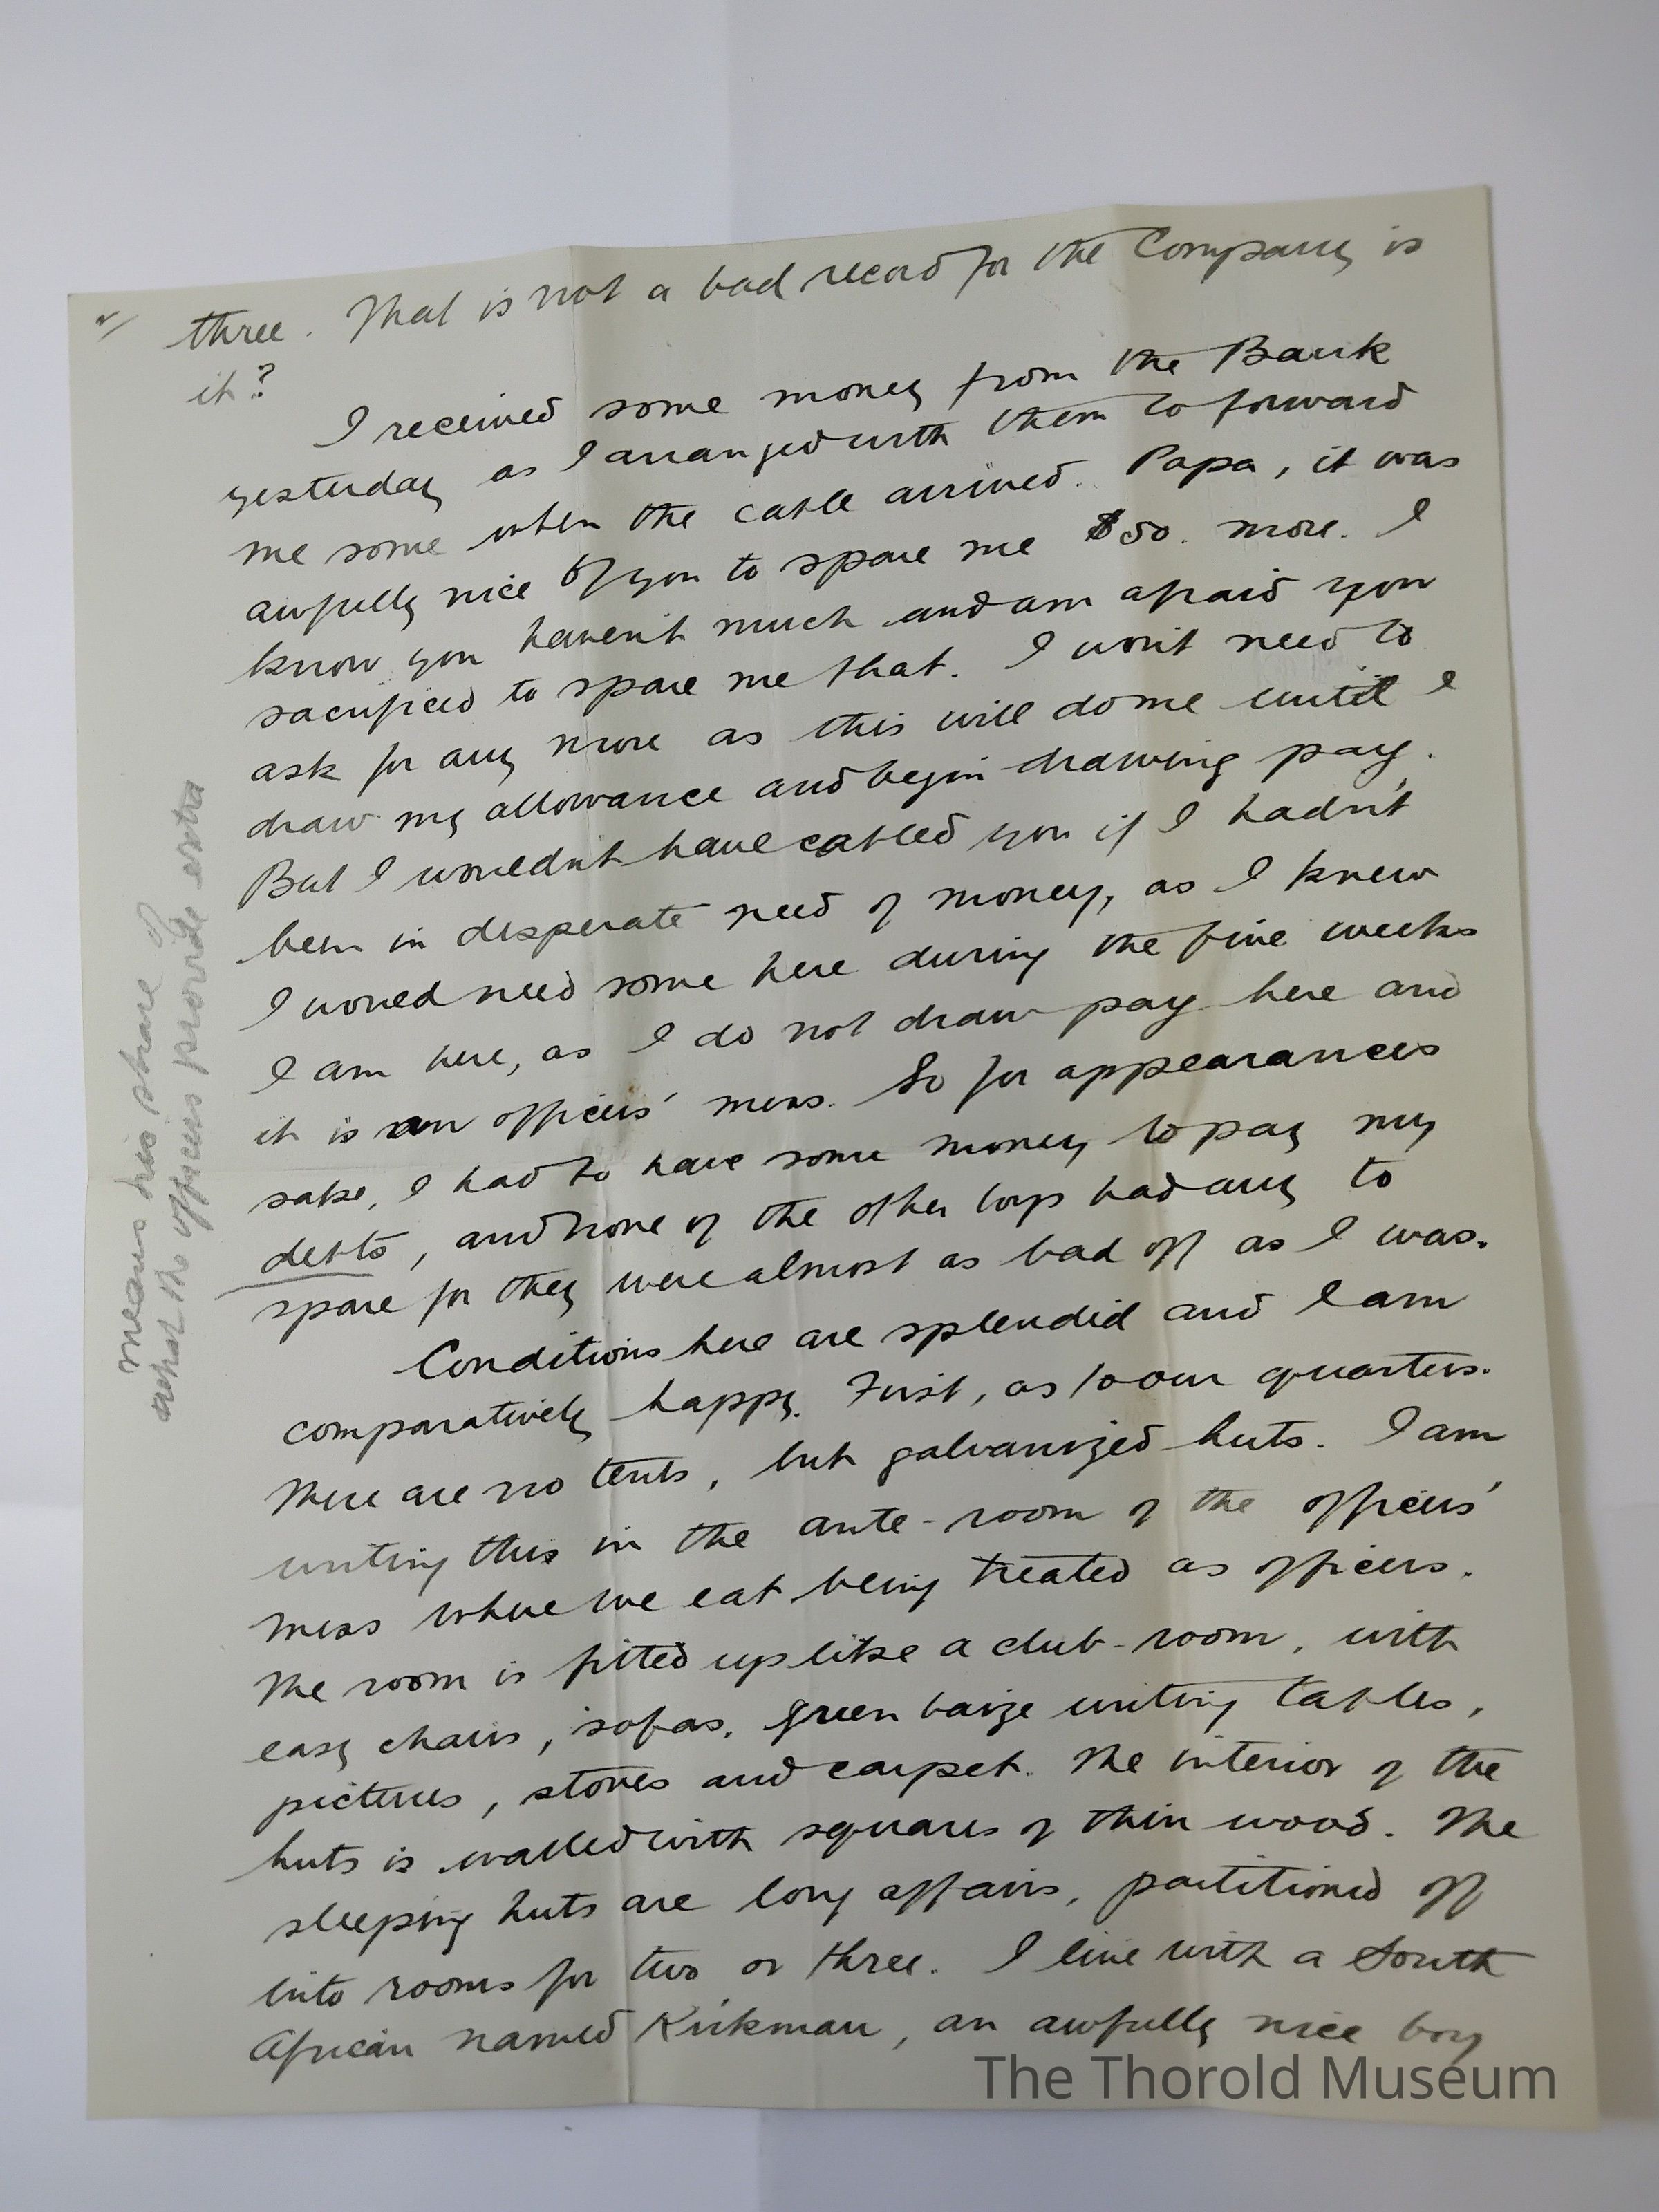 2/
three. That is not a bad record for the Company is
it?
I received some money from the Bank
yesterday as I arranged with them to forward
me some when the cable arrived. Papa, it was
awfully nice of you to spare me $50. more. I
know you haven't much and am afraid you
sacrificed to spare me that. I won't need to
ask for any more as this will do me until I
draw my allowance and begin drawing pay.
But I wouldn't have cabled you if I hadn't
been in desperate need of money, as I knew
I would need some here during the five weeks
I am here, as I do not draw pay here and
it is an officers' mess. So for appearances
sake, I had to have some money to pay my
debts, and none of the other boys had any to
spare for they were almost as bad off as I was.
Conditions here are splendid and I am
comparatively happy. First, as to our quarters.
There are no tents, but galvanized huts. I am
writing this in the ante-room of the officers'
mess where we eat being treated as officers.
The room is fitted up like a club-room, with
easy chairs, sofas, green baize writing tables,
pictures, stoves and carpet. The interior of the
huts is walled with squares of thin wood. The
sleeping huts are long affairs, partitioned off
into rooms for two or three. I live with a South
African named Kirkman, an awfully nice boy
means his share of
what the officers provide extra
The Thorold Museum